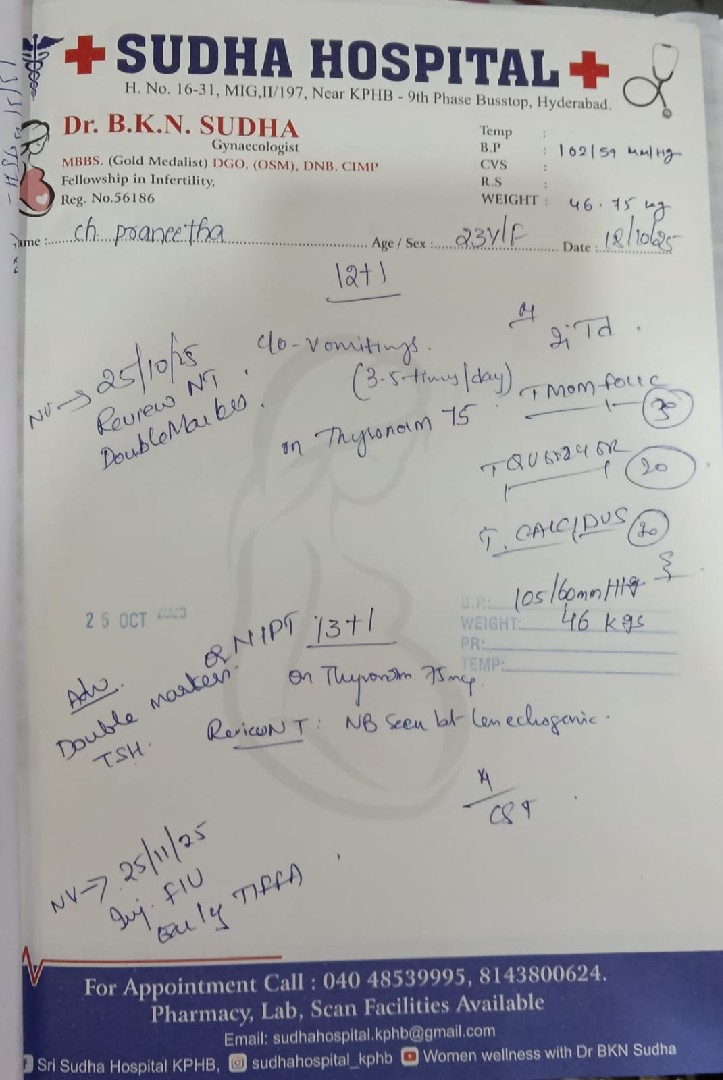 SUDHA HOSPITAL
H. No. 16-31, MIG,II/197, Near KPHB - 9th Phase Busstop, Hyderabad.
Dr. B.K.N. SUDHA
Gynaecologist
MBBS. (Gold Medalist) DGO, (OSM), DNB, CIMP
Fellowship in Infertility,
Reg. No.56186
Temp :
B.P : 102/59 mm/Hg
CVS :
R.S :
WEIGHT : 46.75 kg
ame : ch. praneetha Age / Sex : 23Y/F Date : 18/10/25
12+1
c/o - vomitings.
(3-5 times/day)
on Thyronorm 75
NV → 25/10/25
Review NT
Double Marker.
Td.
T Mom-folic 30
20
T. CALCIDUS
25 OCT
B.P.: 105/60mm/Hg
WEIGHT: 46 kgs
PR:
TEMP:
13+1
on Thyronorm 75mcg.
Review NT : NB seen but less echogenic.
Adv.
Double marker. or NIPT
TSH.
CST
NV → 25/11/25
Inj. FIU
Early TIFFA
For Appointment Call : 040 48539995, 8143800624.
Pharmacy, Lab, Scan Facilities Available
Email: sudhahospital.kphb@gmail.com
Sri Sudha Hospital KPHB, sudhahospital_kphb Women wellness with Dr BKN Sudha